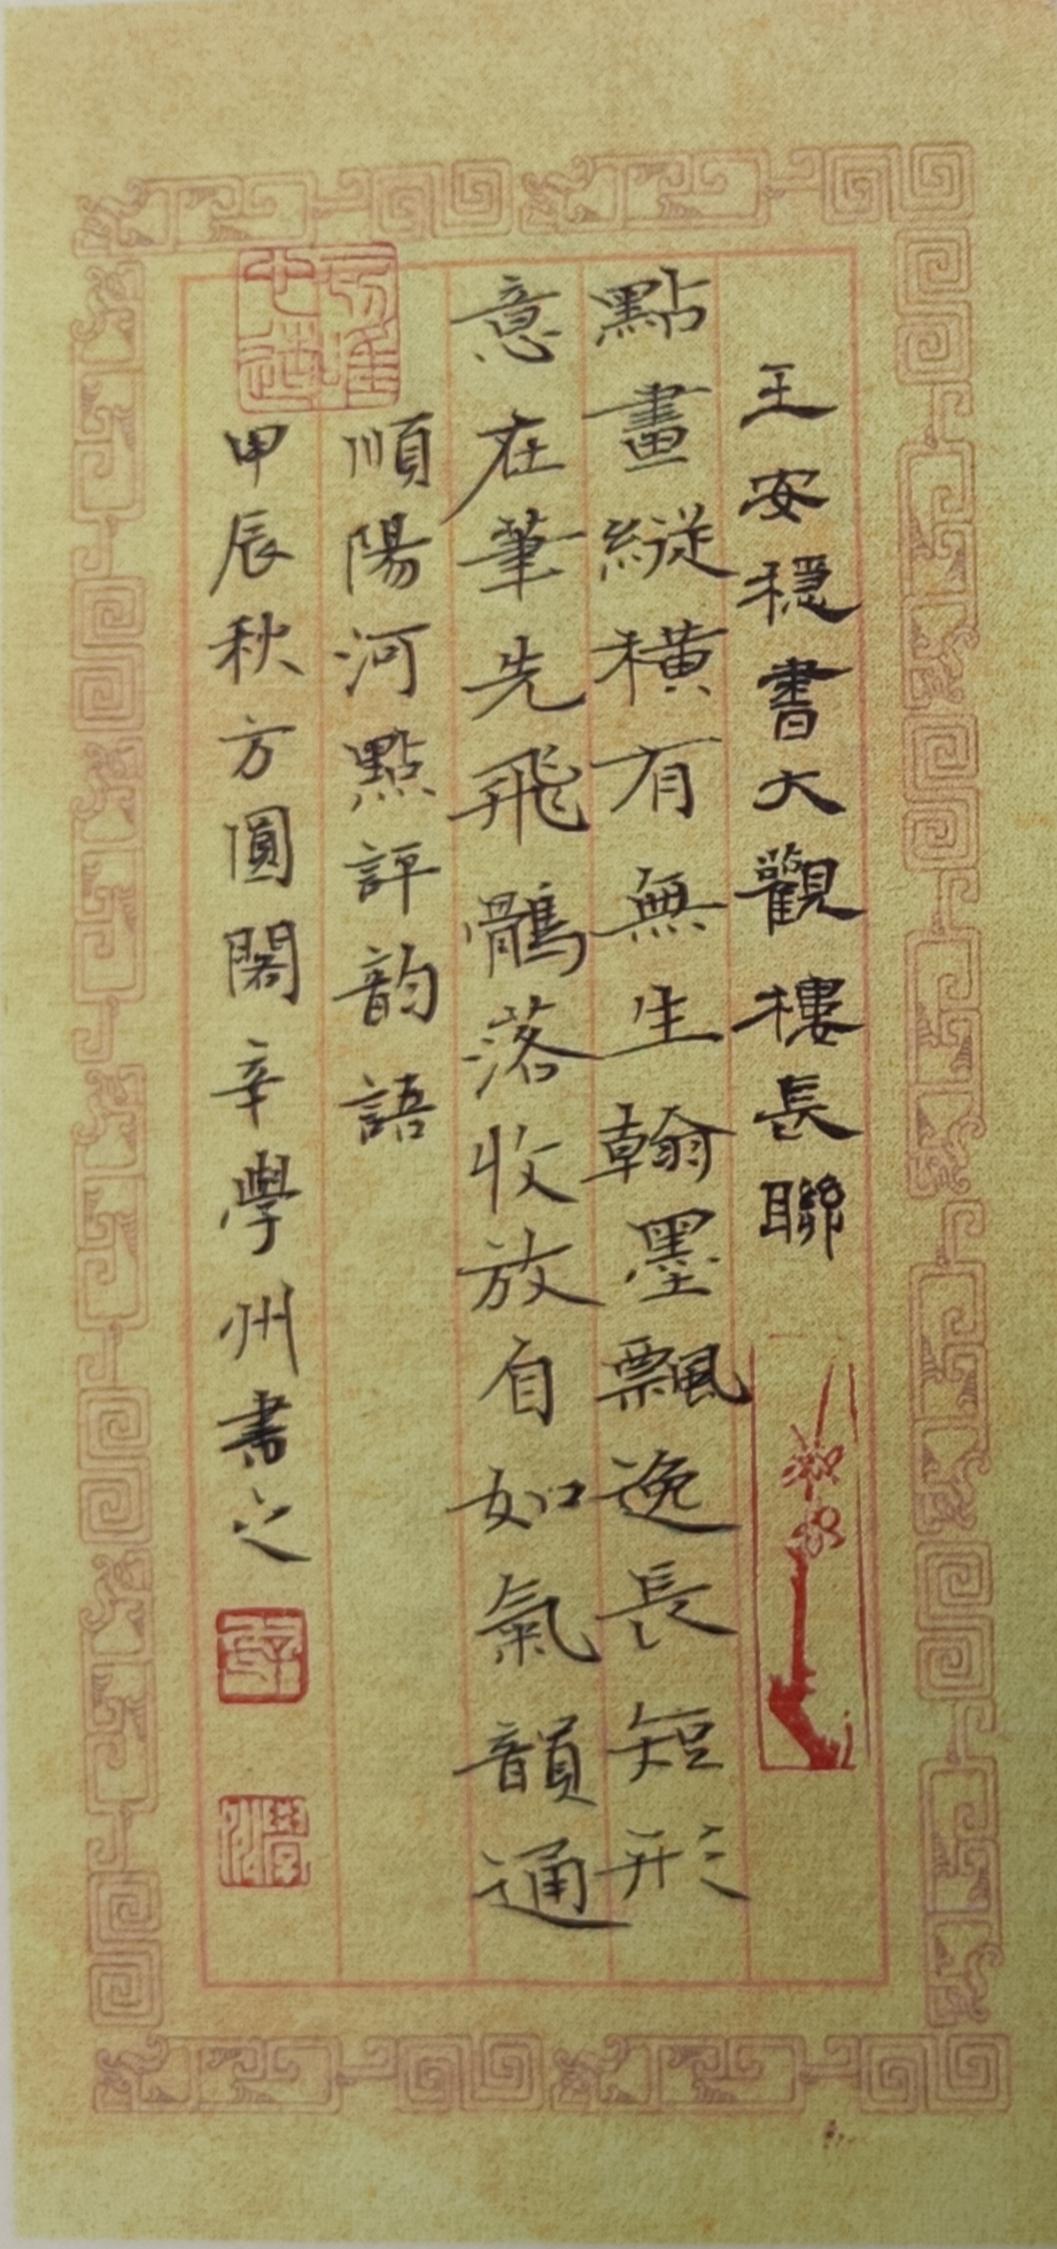 王安穩書大觀樓長聯
點畫縱橫有無生翰墨飄逸長短形
意在筆先飛鶻落收放自如氣韻通
順陽河點評韵語
甲辰秋方圓閣辛學州書之